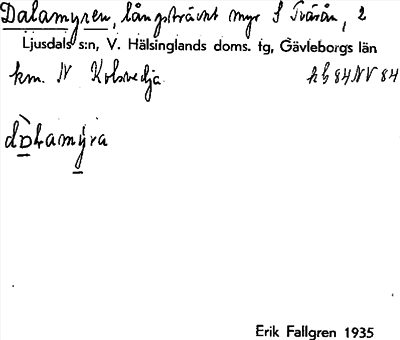 Dalamyren, långsträckt myr S Tvärån, 2
Ljusdals s:n, V. Hälsinglands doms. tg, Gävleborgs län
km. N Kolsvedja
dàlamýra
Erik Fallgren 1935